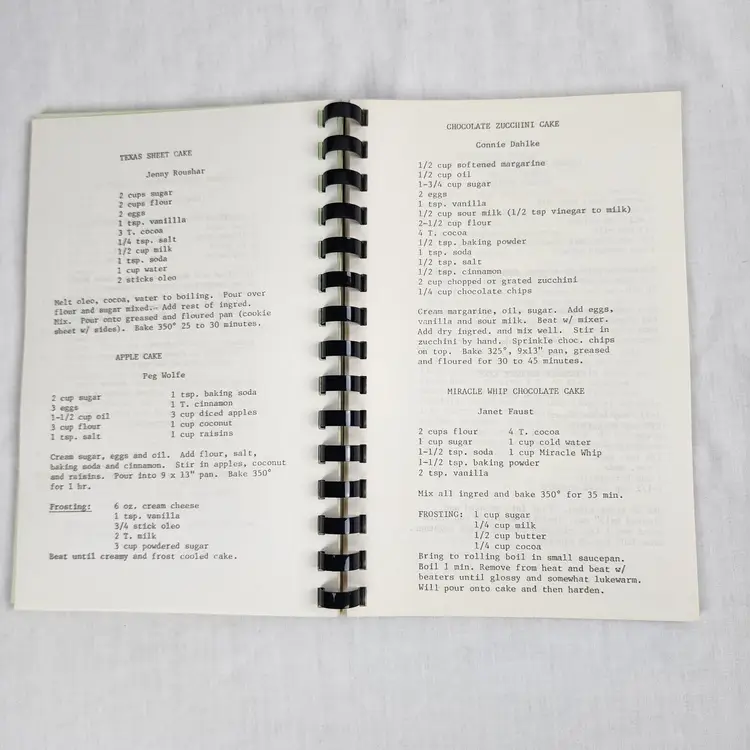 TEXAS SHEET CAKE
Jenny Roushar
2 cups sugar
2 cups flour
2 eggs
1 tsp. vanillla
3 T. cocoa
1/4 tsp. salt
1/2 cup milk
1 tsp. soda
1 cup water
2 sticks oleo
Melt oleo, cocoa, water to boiling. Pour over
flour and sugar mixed. Add rest of ingred.
Mix. Pour onto greased and floured pan (cookie
sheet w/ sides). Bake 350° 25 to 30 minutes.
APPLE CAKE
Peg Wolfe
2 cup sugar
3 eggs
1-1/2 cup oil
3 cup flour
1 tsp. salt
1 tsp. baking soda
1 T. cinnamon
3 cup diced apples
1 cup coconut
1 cup raisins
Cream sugar, eggs and oil. Add flour, salt,
baking soda and cinnamon. Stir in apples, coconut
and raisins. Pour into 9 x 13" pan. Bake 350°
for 1 hr.
Frosting: 6 oz. cream cheese
1 tsp. vanilla
3/4 stick oleo
2 T. milk
3 cup powdered sugar
Beat until creamy and frost cooled cake.
CHOCOLATE ZUCCHINI CAKE
Connie Dahlke
1/2 cup softened margarine
1/2 cup oil
1-3/4 cup sugar
2 eggs
1 tsp. vanilla
1/2 cup sour milk (1/2 tsp vinegar to milk)
2-1/2 cup flour
4 T. cocoa
1/2 tsp. baking powder
1 tsp. soda
1/2 tsp. salt
1/2 tsp. cinnamon
2 cup chopped or grated zucchini
1/4 cup chocolate chips
Cream margarine, oil, sugar. Add eggs,
vanilla and sour milk. Beat w/ mixer.
Add dry ingred. and mix well. Stir in
zucchini by hand. Sprinkle choc. chips
on top. Bake 325°, 9x13" pan, greased
and floured for 30 to 45 minutes.
MIRACLE WHIP CHOCOLATE CAKE
Janet Faust
2 cups flour
1 cup sugar
1-1/2 tsp. soda
1-1/2 tsp. baking powder
2 tsp. vanilla
4 T. cocoa
1 cup cold water
1 cup Miracle Whip
Mix all ingred and bake 350° for 35 min.
FROSTING: 1 cup sugar
1/4 cup milk
1/2 cup butter
1/4 cup cocoa
Bring to rolling boil in small saucepan.
Boil 1 min. Remove from heat and beat w/
beaters until glossy and somewhat lukewarm.
Will pour onto cake and then harden.